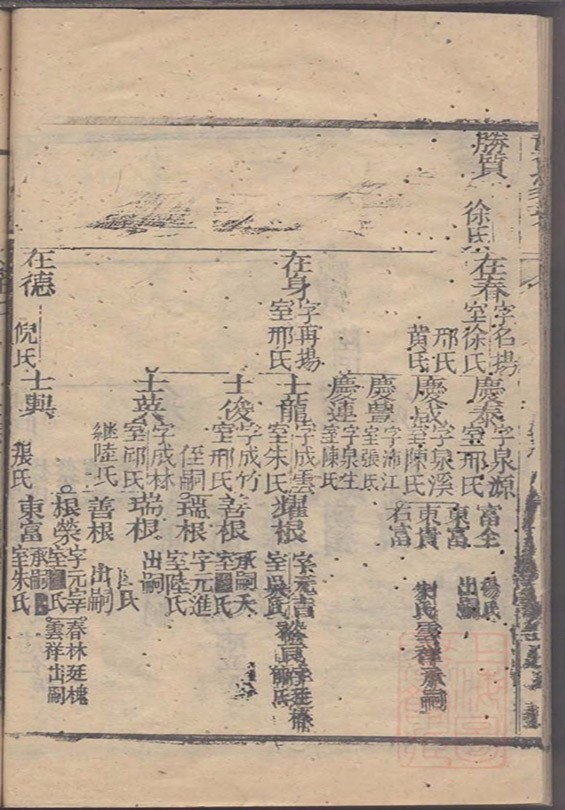 勝質
徐氏
在春 字名揚 室徐氏 邢氏 黄氏
慶泰 字泉源 室邢氏
富全 楊氏
東富 出嗣
字泉溪 室陳氏
東貴
雲祥承嗣
右富
慶豐 字沛江 室張氏
慶連 字泉生 室陳氏
在身 字再揚 室邢氏
士龍 字成雲 室朱氏
耀根 字元吉 室吳氏
士俊 字成竹 室邢氏 侄嗣
善根 承嗣 室 氏
瑞根 字元進 室陸氏
士英 字成林 室邱氏 継陸氏
瑞根 出嗣
氏
善根 出嗣
根榮 字元宰 室 氏
春林 廷槐
雲祥 出嗣
在德 倪氏
士興 張氏
東富 承嗣 室朱氏